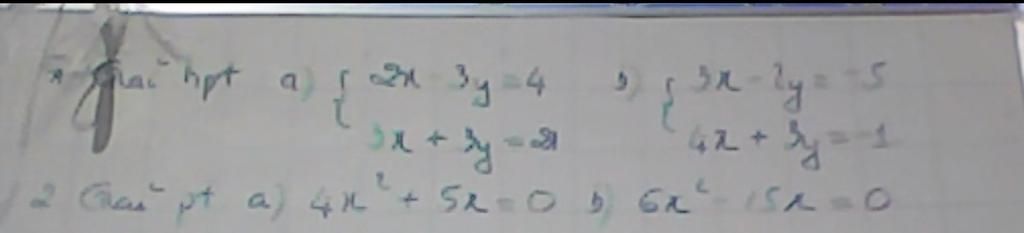 Giải hpt a) { 2x - 3y = 4 b) { 3x - 2y = -5
3x + 3y = 21 4x + 3y = -1
2 Giải pt a) 4x² + 5x = 0 b) 6x² - 15x = 0